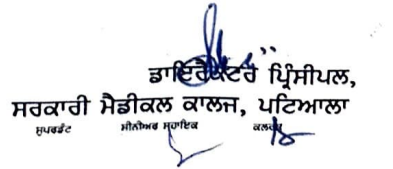 ਡਾਇਰੈਕਟਰ ਪ੍ਰਿੰਸੀਪਲ,
ਸਰਕਾਰੀ ਮੈਡੀਕਲ ਕਾਲਜ, ਪਟਿਆਲਾ
ਸੁਪਰਡੰਟ ਸੀਨੀਅਰ ਸਹਾਇਕ ਕਲਰਕ